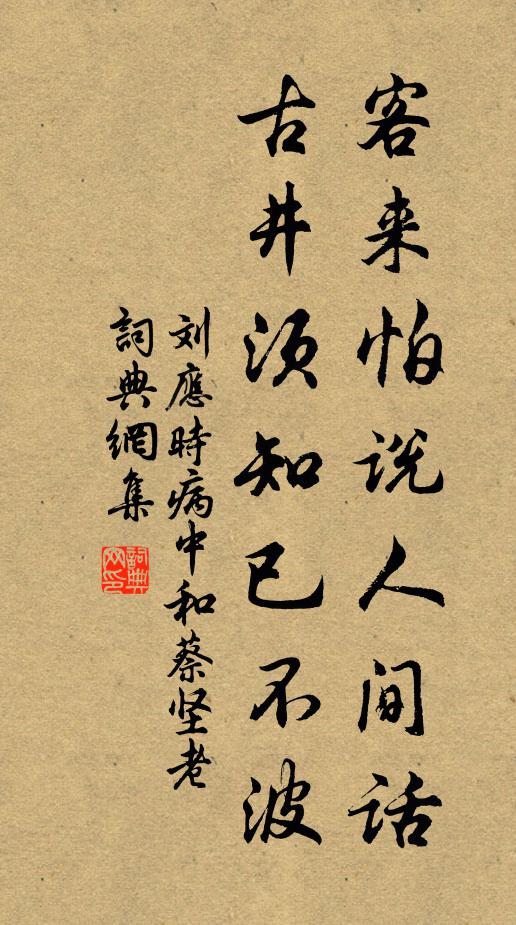 客来怕说人间话
古井须知已不波
刘應時病中和蔡坚老
詞典網集
詞典网印